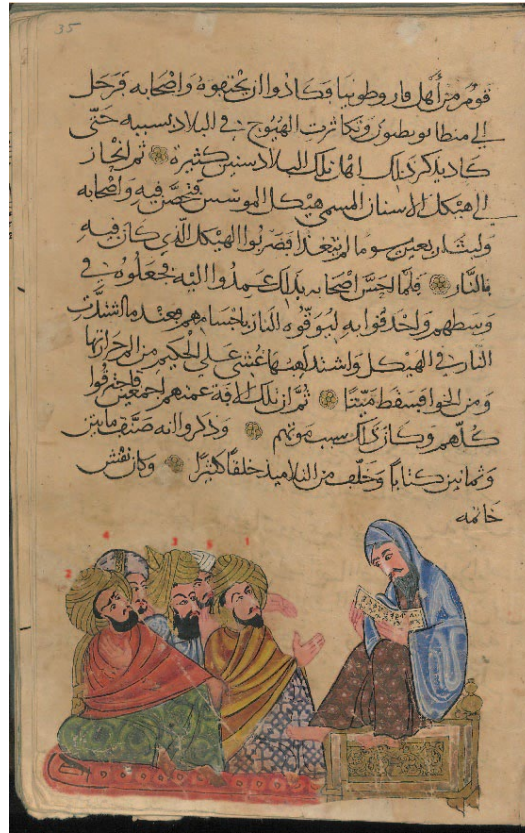 35
قوم من أهل قاروطونيا وكادوا ان يخنقوه واصحابه فرحل
الى وتكاثرت الهيوج في البلاد بسببه حتى
كاد يذكر ذلك اهل تلك البلاد سنين كثيرة ثم انحاز
الى هيكل الاسنان المسمى هيكل الموسس فتحصن فيه واصحابه
ولبث اربعين يوما لم يتغذا فضربوا الهيكل الذي كان فيه
بالنار فلما احس اصحابه بذلك عمدوا اليه فجعلوه في
وسطهم واحدقوا به ليوقوه النار باجسامهم فعند ما اشتدت
النار في الهيكل واشتد لهبها غشى على الحكيم من الم حرارتها
ومن الخوا فسقط ميتا ثم ان تلك الافة عمتهم اجمعين فاحترقوا
كلهم وكان ذلك سبب موتهم وذكروا انه صنف مايتين
وثمانين كتابا وخلف من التلاميذ خلقا كثيرا وكان نقش
خاتمه
4
2 3 5 1